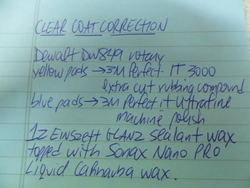 CLEAR COAT CORRECTION
Dewalt DW849 rotary
yellow pads → 3M Perfect IT 3000
Extra cut rubbing compound
blue pads → 3M Perfect it Ultrafine
machine polish
1Z Einszett GLANZ Sealant wax
topped with Sonax Nano PRO
Liquid Carnauba wax.